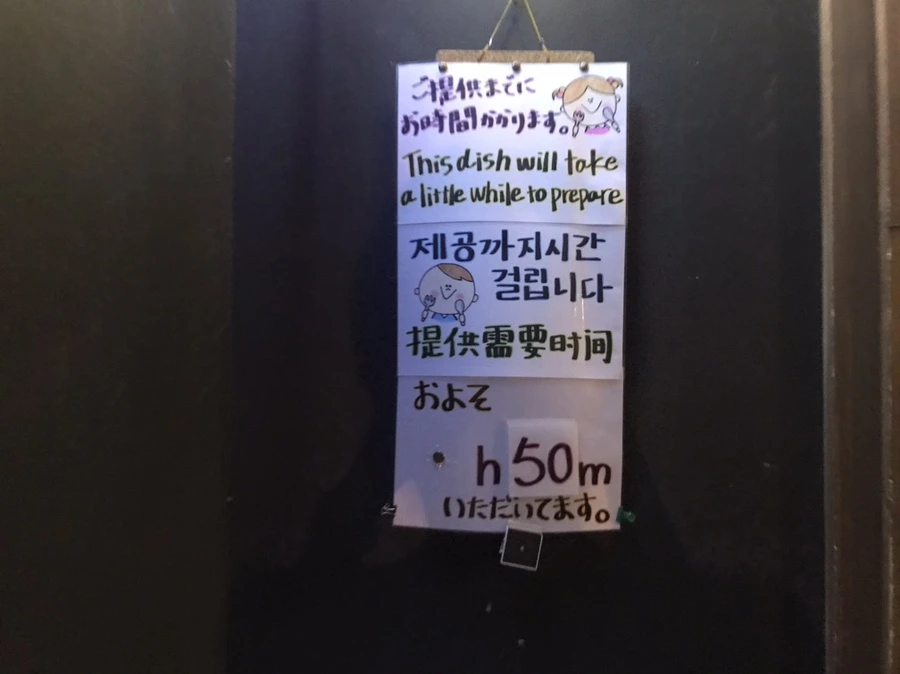 ご提供までに
お時間がかります。
This dish will take
a little while to prepare
제공까지시간
걸립니다
提供需要时间
およそ
h 50m
いただいてます。